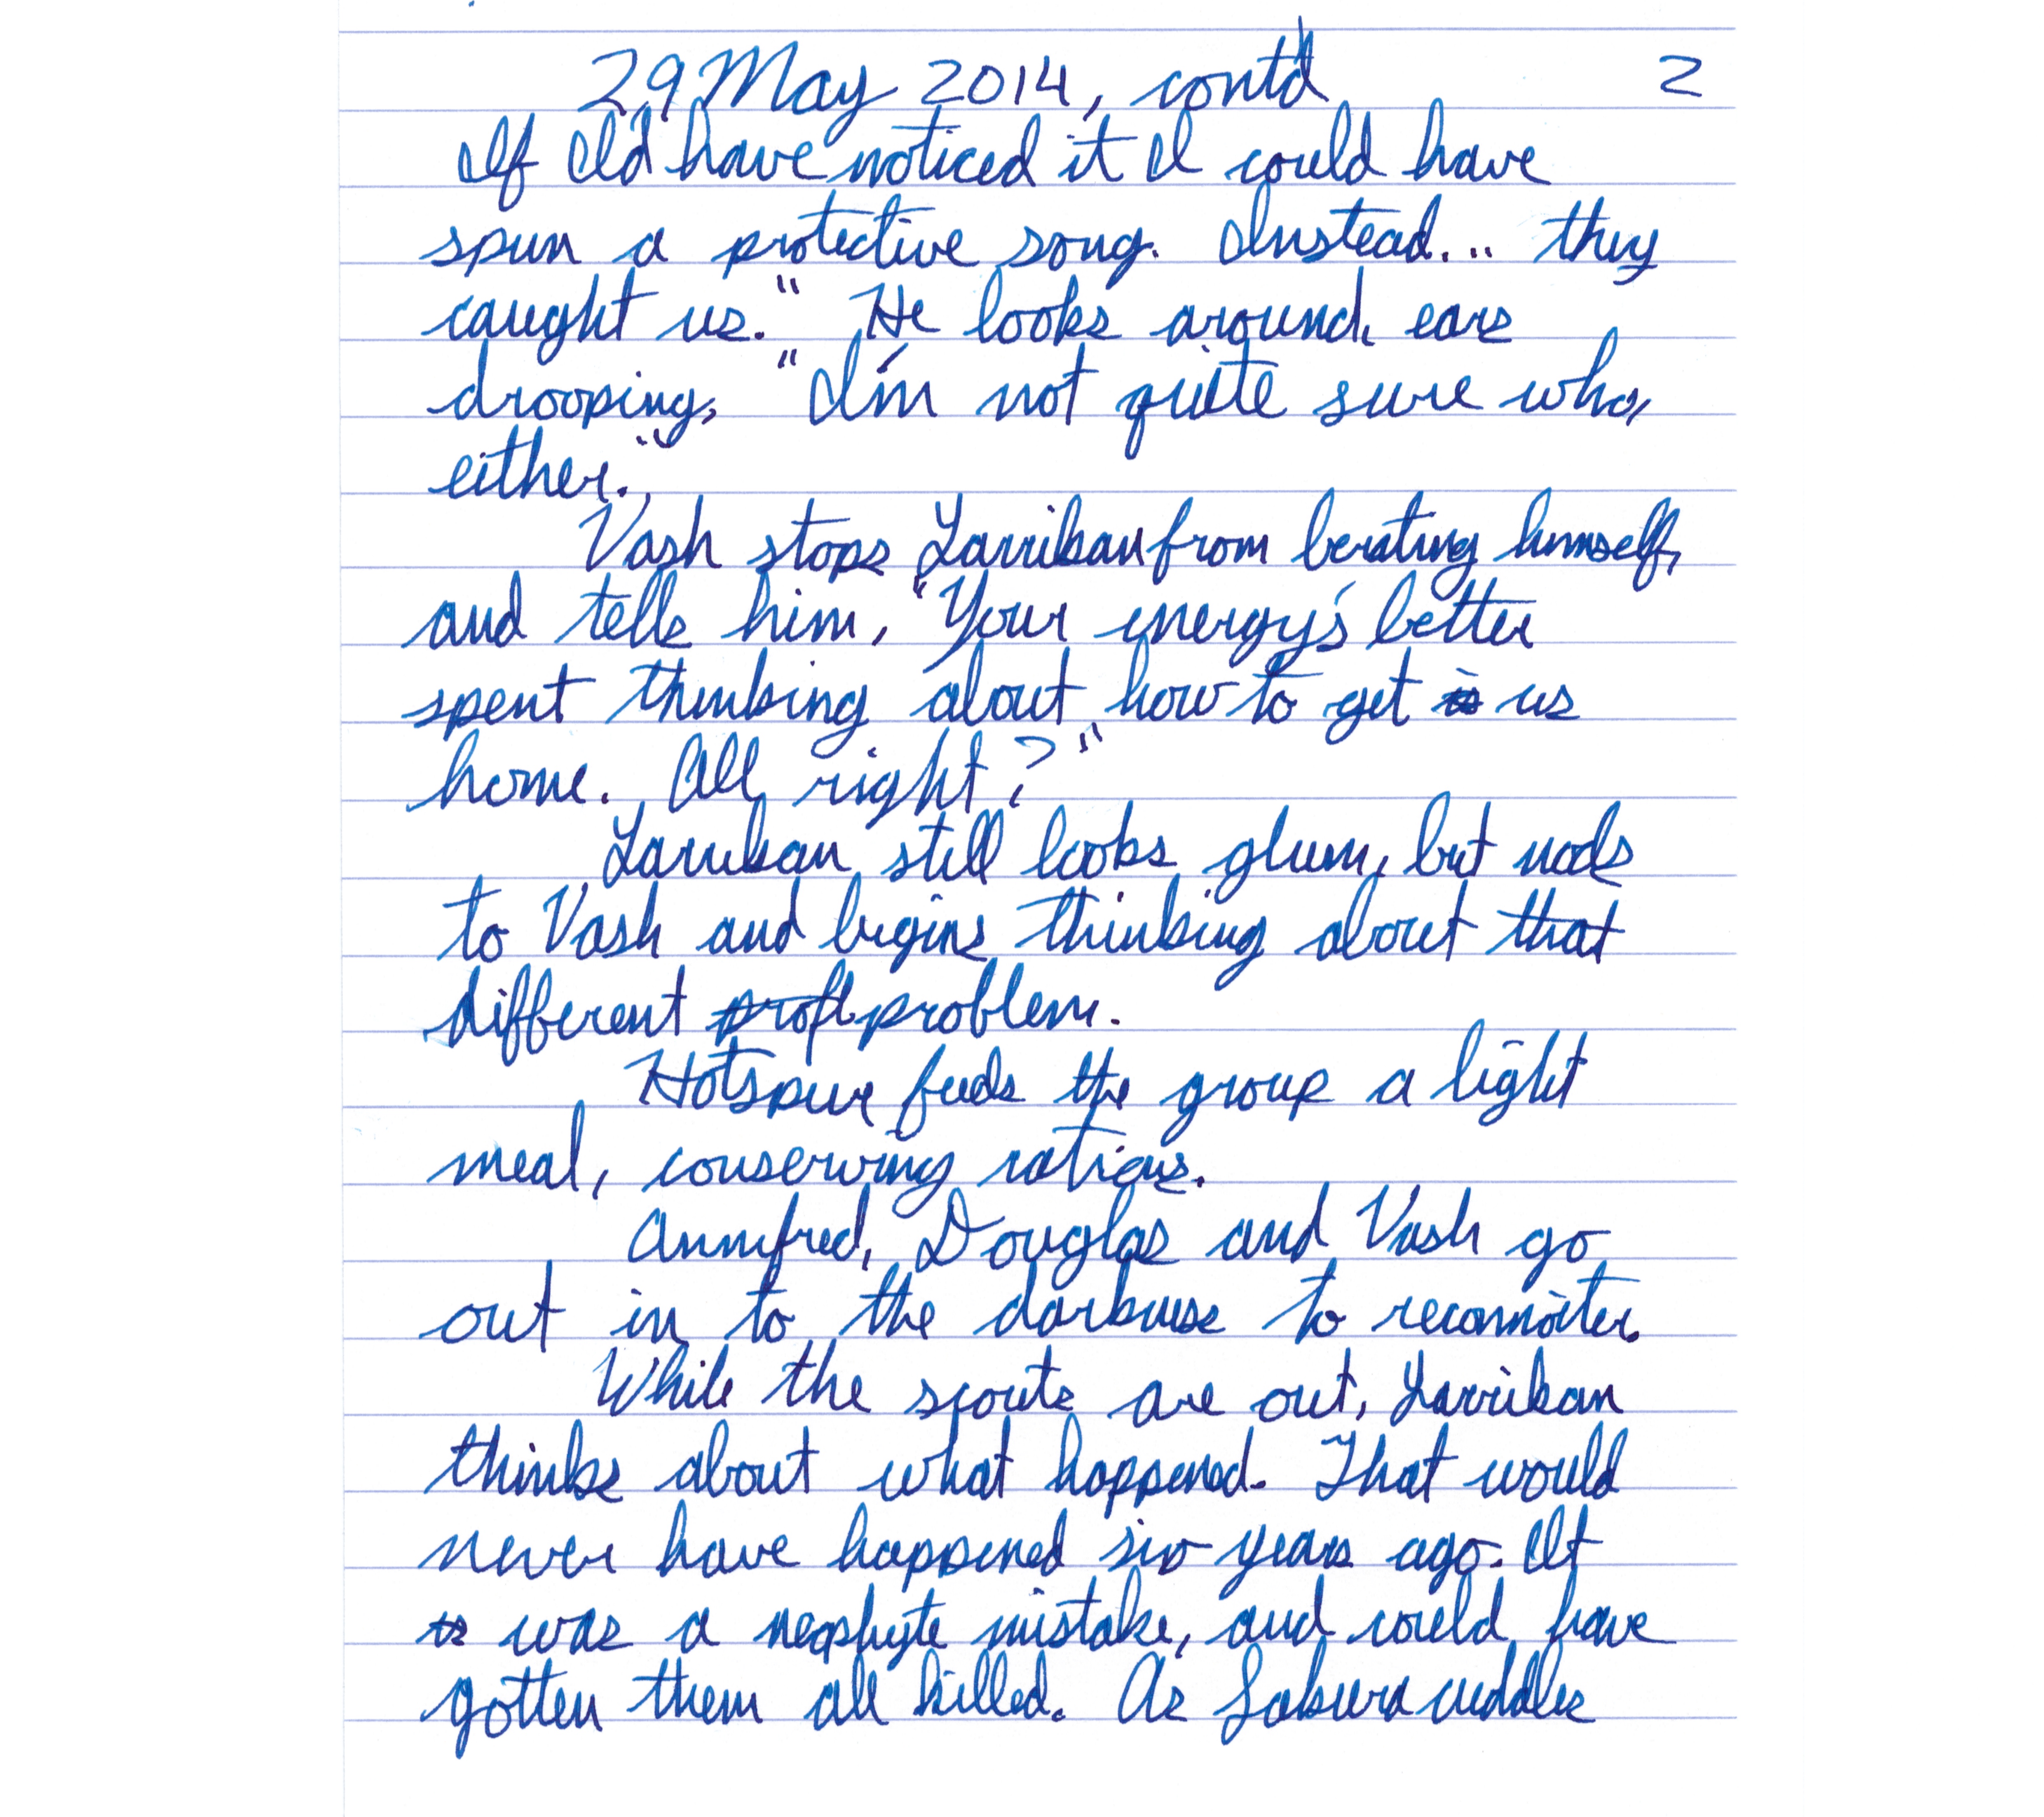 29 May 2014, contd 2
If I'd have noticed it I could have
spun a protective song. Instead... they
caught us." He looks around, ears
drooping, "I'm not quite sure who,
either."
Vash stops Larrikan from berating himself,
and tells him, "Your energy's better
spent thinking about how to get is us
home. All right?"
Larrikan still looks glum, but nods
to Vash and begins thinking about that
different profl problem.
Hotspur feeds the group a light
meal, conserving rations.
Annifred, Douglas and Vash go
out in to the darkness to reconnoiter.
While the scouts are out, Larrikan
thinks about what happened. That would
never have happened six years ago. It
is was a neophyte mistake, and could have
gotten them all killed. As Sakura cuddles